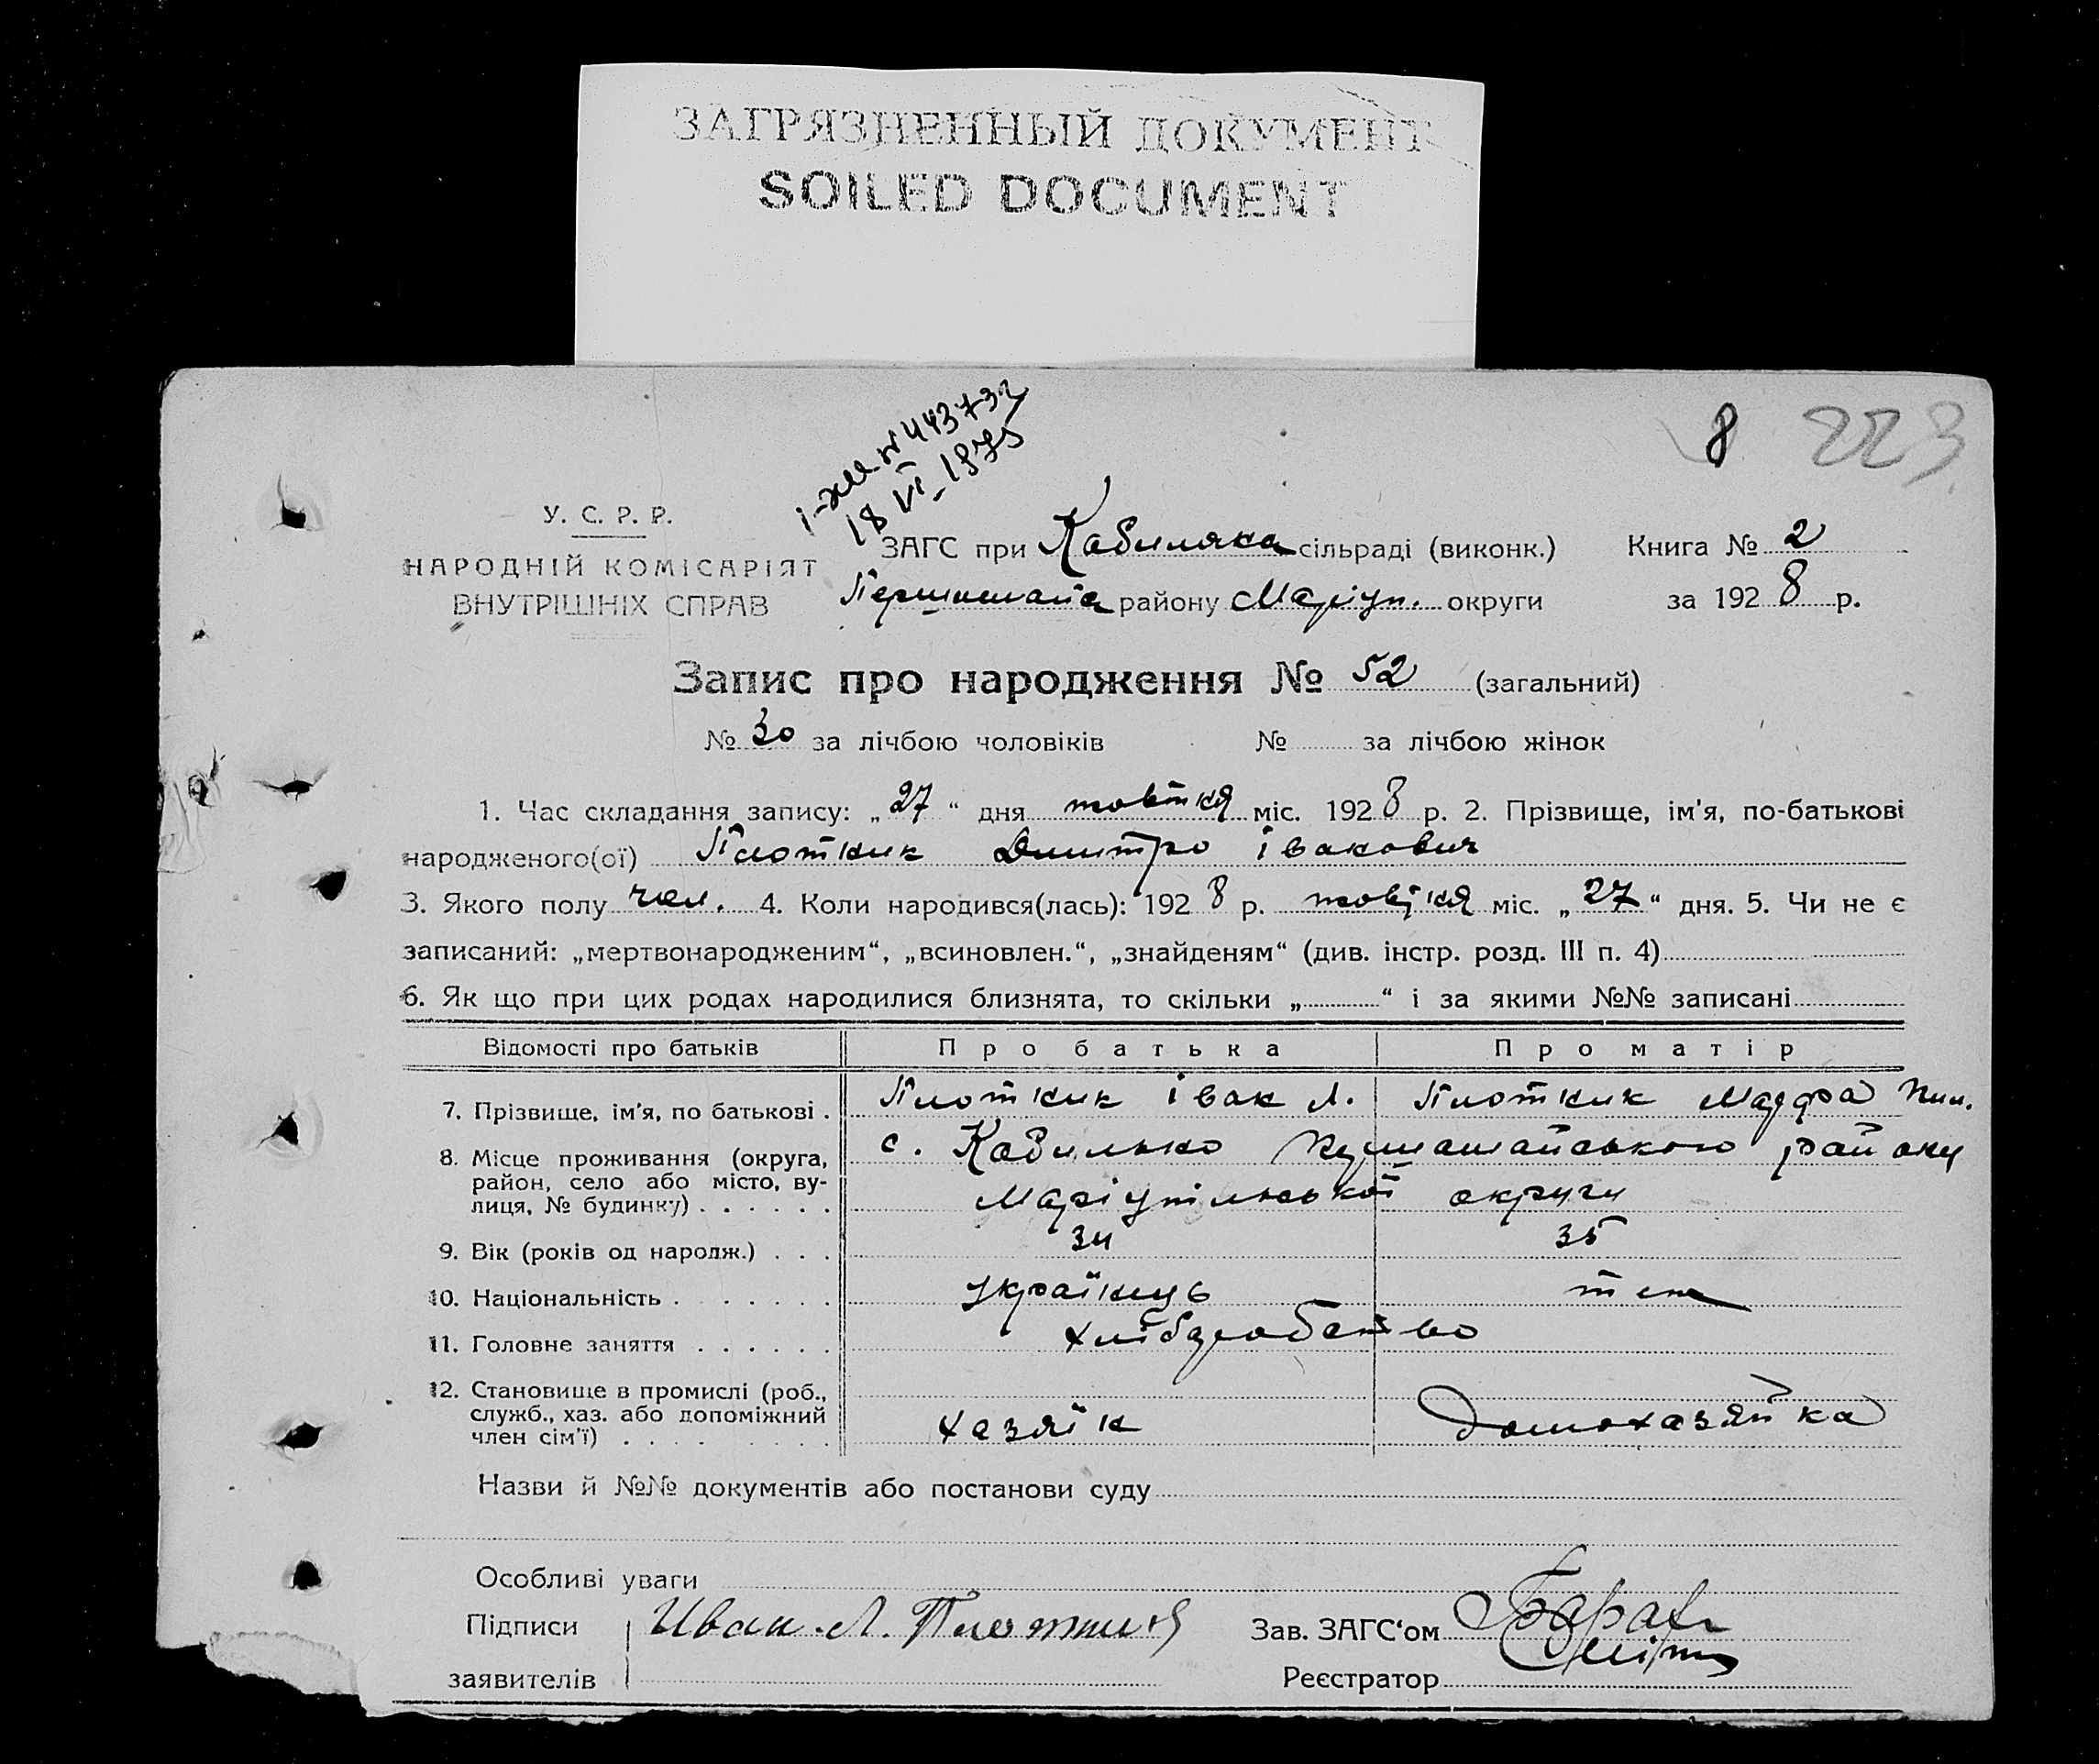 ЗАГРЯЗНЕННЫЙ ДОКУМЕНТ
SOILED DOCUMENT
8 223
18 VI-1975
У. С. Р. Р.
НАРОДНІЙ КОМІСАРІЯТ
ВНУТРІШНІХ СПРАВ
ЗАГС при сільраді (виконк.) Книга № 2
району Маріуп. округи за 1928 р.
Запис про народження № 52 (загальний)
№ 30 за лічбою чоловіків № за лічбою жінок
1. Час складання запису: „27“ дня жовтня міс. 1928 р. 2. Прізвище, ім'я, по-батькові
народженого(ої) Плотник Дмитро Іванович
3. Якого полу чол. 4. Коли народився(лась): 1928 р. жовтня міс. „27“ дня. 5. Чи не є
записаний: „мертвонародженим“, „всиновлен.“, „знайденям“ (див. інстр. розд. III п. 4)
6. Як що при цих родах народилися близнята, то скільки „ “ і за якими №№ записані
Відомості про батьків Про батька Про матір
7. Прізвище, ім'я, по батькові . Плотник Іван Л. Плотник Марфа
8. Місце проживання (округа, с. району
район, село або місто, ву-
лиця, № будинку) . . . . . . Маріупільської округи
9. Вік (років од народж.) . . . 34 35
10. Національність . . . . . . . українець теж
11. Головне заняття . . . . . . хліборобство
12. Становище в промислі (роб.,
служб., хаз. або допоміжний
член сім'ї) . . . . . . . . . хазяїн домохазяйка
Назви й №№ документів або постанови суду
Особливі уваги
Підписи Иван Л. Плотник Зав. ЗАГС‘ом
заявителів Реєстратор